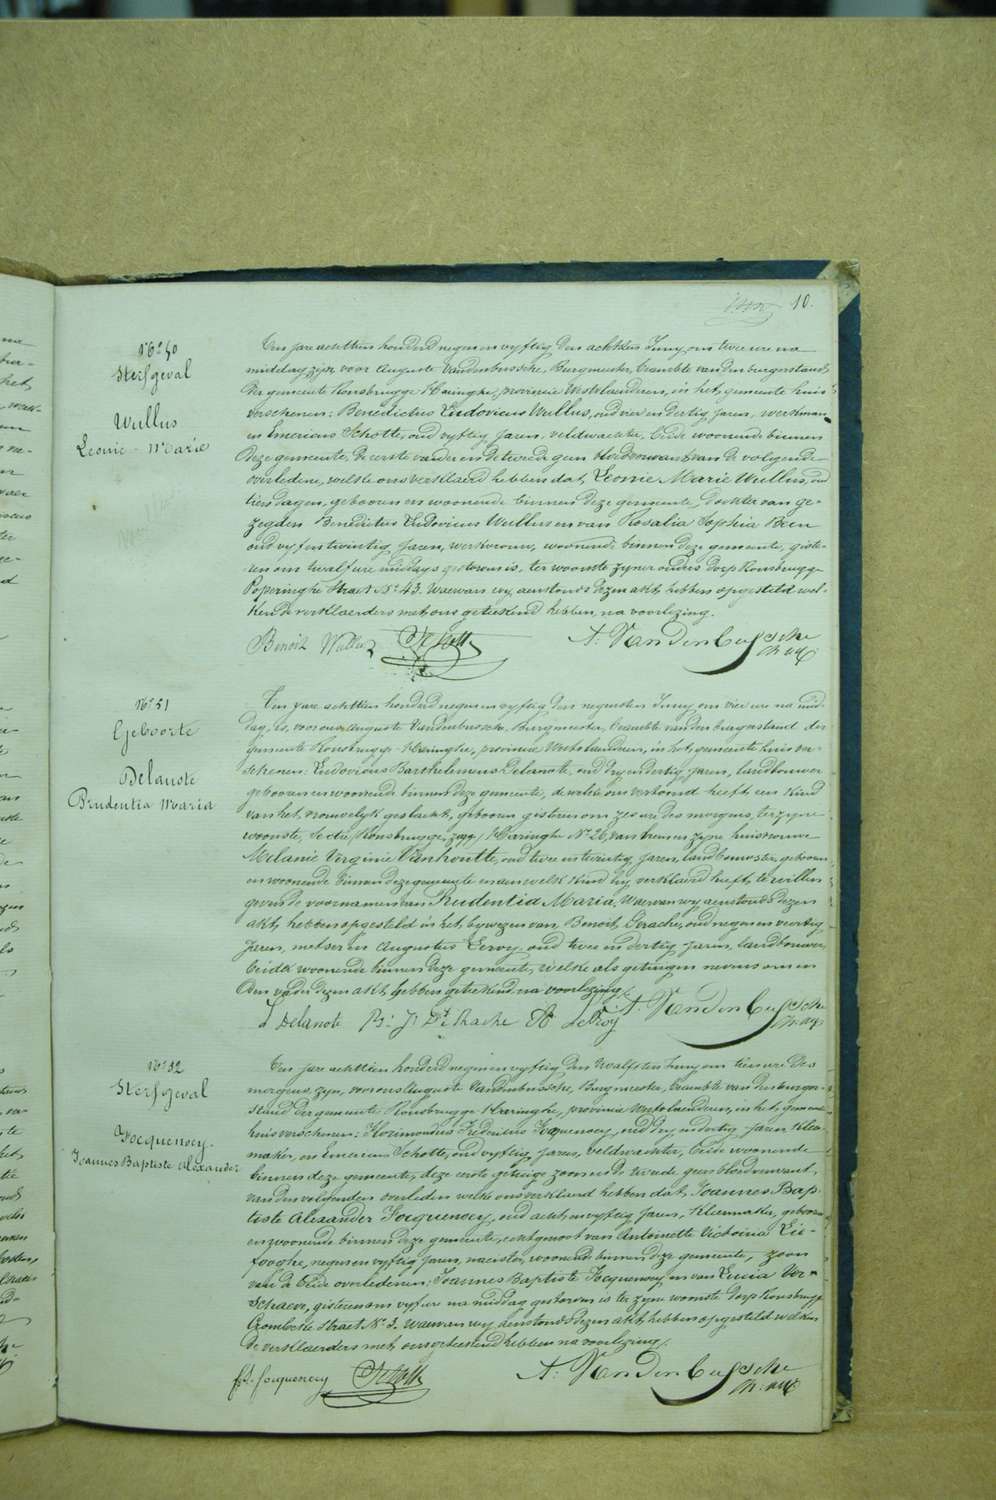 10.
N° 50
Sterfgeval
Wullus
Leonie Maria
Ten jare achttien honderd negen en vyftig den achtsten Juny om twee ure na
middag zyn voor ons Auguste Vandenbussche, Burgmeester, beambte van den burgerstand
der gemeente Rousbrugge-Haringhe, provincie Westvlaenderen, in het gemeente huis
verschenen: Benedictus Ludovicus Wullus, oud vier en dertig jaren, werkman
en Emerians Schotte, oud vyftig jaren, veldwachter, beide woonende binnen
deze gemeente, de eerste vader en de tweede geen bloedverwant van de volgende
overledene, welke ons verklaerd hebben dat Leonie Marie Wullus, oud
tien dagen, geboren en woonende binnen deze gemeente, dochter van ge-
zegden Benedictus Ludovicus Wullus en van Rosalia Sophia
oud vyf en twintig jaren, werkvrouw, woonende binnen deze gemeente, giste-
ren om twalf ure middags gestorven is, ter woonste zyner ouders dorp Rousbrugge
Poperinghe Straet N° 43. Waervan wy aenstonds dezen akt hebben opgesteld wel-
ken de verklaerders met ons geteekend hebben, na voorlezing.
Benoit Wullus Schotte A. Vandenbussche
N° 51
Geboorte
Delanote
Prudentia Maria
Ten jare achttien honderd negen en vyftig den negensten Juny om vier ure na mid-
dag, is, voor ons Auguste Vandenbussche, Burgmeester, beambte van den burgerstand der
gemeente Rousbrugge-Haringhe, provincie Westvlaenderen, in het gemeente huis ver-
schenen: Ludovicus Barthelemeus Delanote, oud dry en dertig jaren, landbouwer
geboren en woonende binnen deze gemeente, de welke ons vertoond heeft een kind
van het vrouwelyk geslacht, geboren gisteren om zes ure des morgens, ter zyne
woonste, sectie Rousbrugge, Haringhe N° 26, van hem en zyne huisvrouwe
Melanie Virginie Vanhoutte, oud twee en twintig jaren, landbouwster, geboren
en woonende binnen deze gemeente en aen welk kind hy verklaerd heeft te willen
geven de voornamen van Prudentia Maria, waervan wy aenstonds dezen
akt hebben opgesteld in het bywezen van Benoit Derache, oud negen en veertig
jaren, metser en Augustus Leroy, oud twee en dertig jaren, landbouwer,
beide woonende binnen deze gemeente, welke als getuigen nevens ons en
den vader dezen akt hebben geteekend na voorlezing.
L Delanote Bt. J. De Rache A Leroy A. Vandenbussche
N° 52
Sterfgeval
Jocquenoey
Joannes Baptiste Alexander
Ten jare achttien honderd negen en vyftig den twalfsten Juny om tien ure des
morgens zyn, voor ons Auguste Vandenbussche, Burgmeester, beambte van den burger-
stand der gemeente Rousbrugge Haringhe, provincie Westvlaenderen, in het gemeente
huis verschenen: Florimondus Fredericus Jocquenoey, oud dry en dertig jaren kleer-
maker, en Emerians Schotte, oud vyftig jaren, veldwachter, beide woonende
binnen deze gemeente, deze eerste getuige zoon en de tweede geen bloedverwant,
van den volgenden overleden welke ons verklaerd hebben dat Joannes Bap-
tiste Alexander Jocquenoey, oud acht en vyftig jaren, kleermaker, geboren
en woonende binnen deze gemeente, echtgenoot van Antoinette Victoria Lie-
fooghe, negen en vyftig jaren, naeister, woonende binnen deze gemeente, zoon
van de beide overledenen: Joannes Baptiste Jocquenoey en van Lucia Ver-
schaeve, gisteren om vyf ure na middag gestorven is ter zyne woonste dorp Rousbrugge
Crombeke Straet N° 3. Waervan wy aenstonds dezen akt hebben opgesteld welken
de verklaerders met ons geteekend hebben na voorlezing.
Jocquenoey Schotte A. Vandenbussche